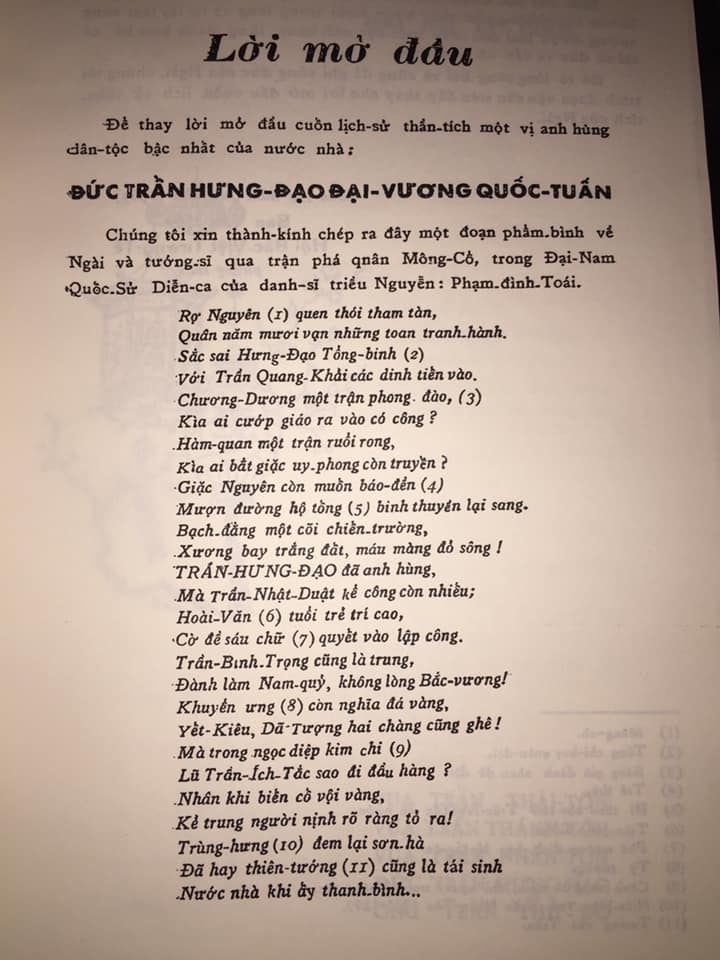 Lời mở đầu
Để thay lời mở đầu cuốn lịch-sử thần-tích một vị anh hùng
dân-tộc bậc nhất của nước nhà:
ĐỨC TRẦN HƯNG-ĐẠO ĐẠI-VƯƠNG QUỐC-TUẤN
Chúng tôi xin thành-kính chép ra đây một đoạn phẩm-bình về
Ngài và tướng-sĩ qua trận phá qnân Mông-Cổ, trong Đại-Nam
Quốc-Sử Diễn-ca của danh-sĩ triều Nguyễn: Phạm-đình-Toái.
Rợ Nguyên (1) quen thói tham tàn,
Quân năm mươi vạn những toan tranh-hành.
Sắc sai Hưng-Đạo Tổng-binh (2)
Với Trần Quang-Khải các dinh tiến vào.
Chương-Dương một trận phong đào, (3)
Kìa ai cướp giáo ra vào có công ?
Hàm-quan một trận ruổi rong,
Kìa ai bắt giặc uy-phong còn truyền ?
Giặc Nguyên còn muốn báo-đền (4)
Mượn đường hộ tống (5) binh thuyền lại sang.
Bạch-đằng một cõi chiến-trường,
Xương bay trắng đất, máu màng đỏ sông !
TRẦN-HƯNG-ĐẠO đã anh hùng,
Mà Trần-Nhật-Duật kể công còn nhiều;
Hoài-Văn (6) tuổi trẻ trí cao,
Cờ đề sáu chữ (7) quyết vào lập công.
Trần-Bình-Trọng cũng là trung,
Đành làm Nam-quỷ, không lòng Bắc-vương!
Khuyển ưng (8) còn nghĩa đá vàng,
Yết-Kiêu, Dã-Tượng hai chàng cũng ghê !
Mà trong ngọc diệp kim chi (9)
Lũ Trần-Ích-Tắc sao đi đầu hàng ?
Nhân khi biến cố vội vàng,
Kẻ trung người nịnh rõ ràng tỏ ra!
Trùng-hưng (10) đem lại sơn-hà
Đã hay thiên-tướng (11) cũng là tái sinh
Nước nhà khi ấy thanh-bình...